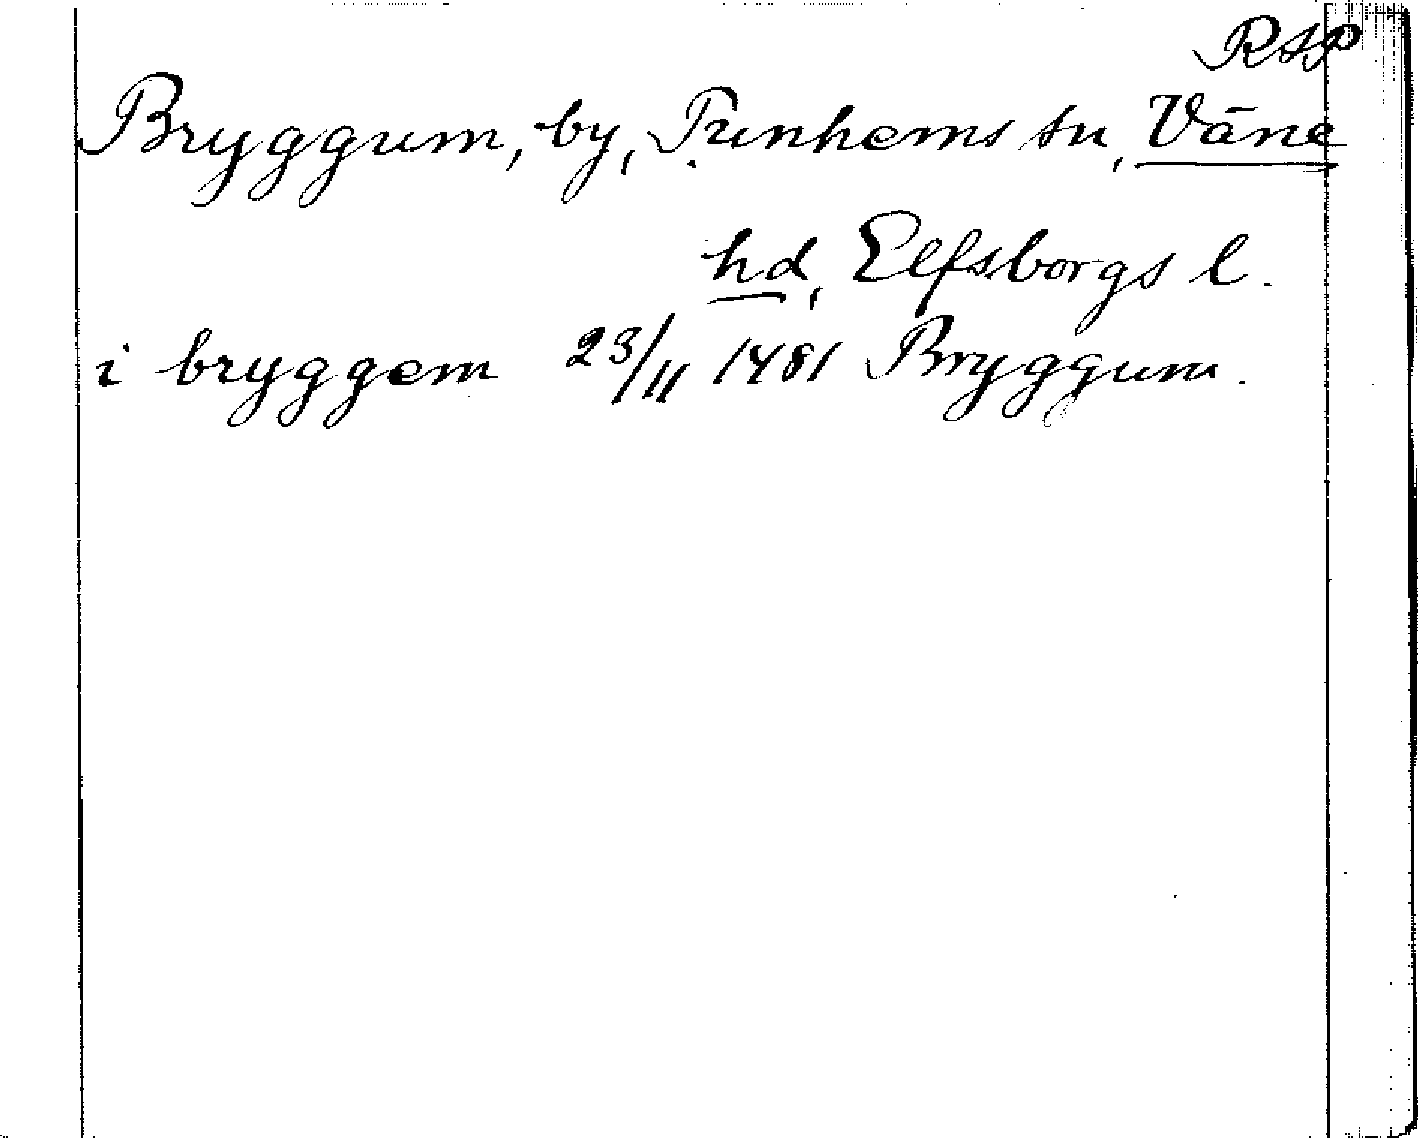 RAP
Bryggum, by, Trunhems sn, Väne
hd, Elfsborgs l.
i bryggem 23/11 1481 Bryggum.